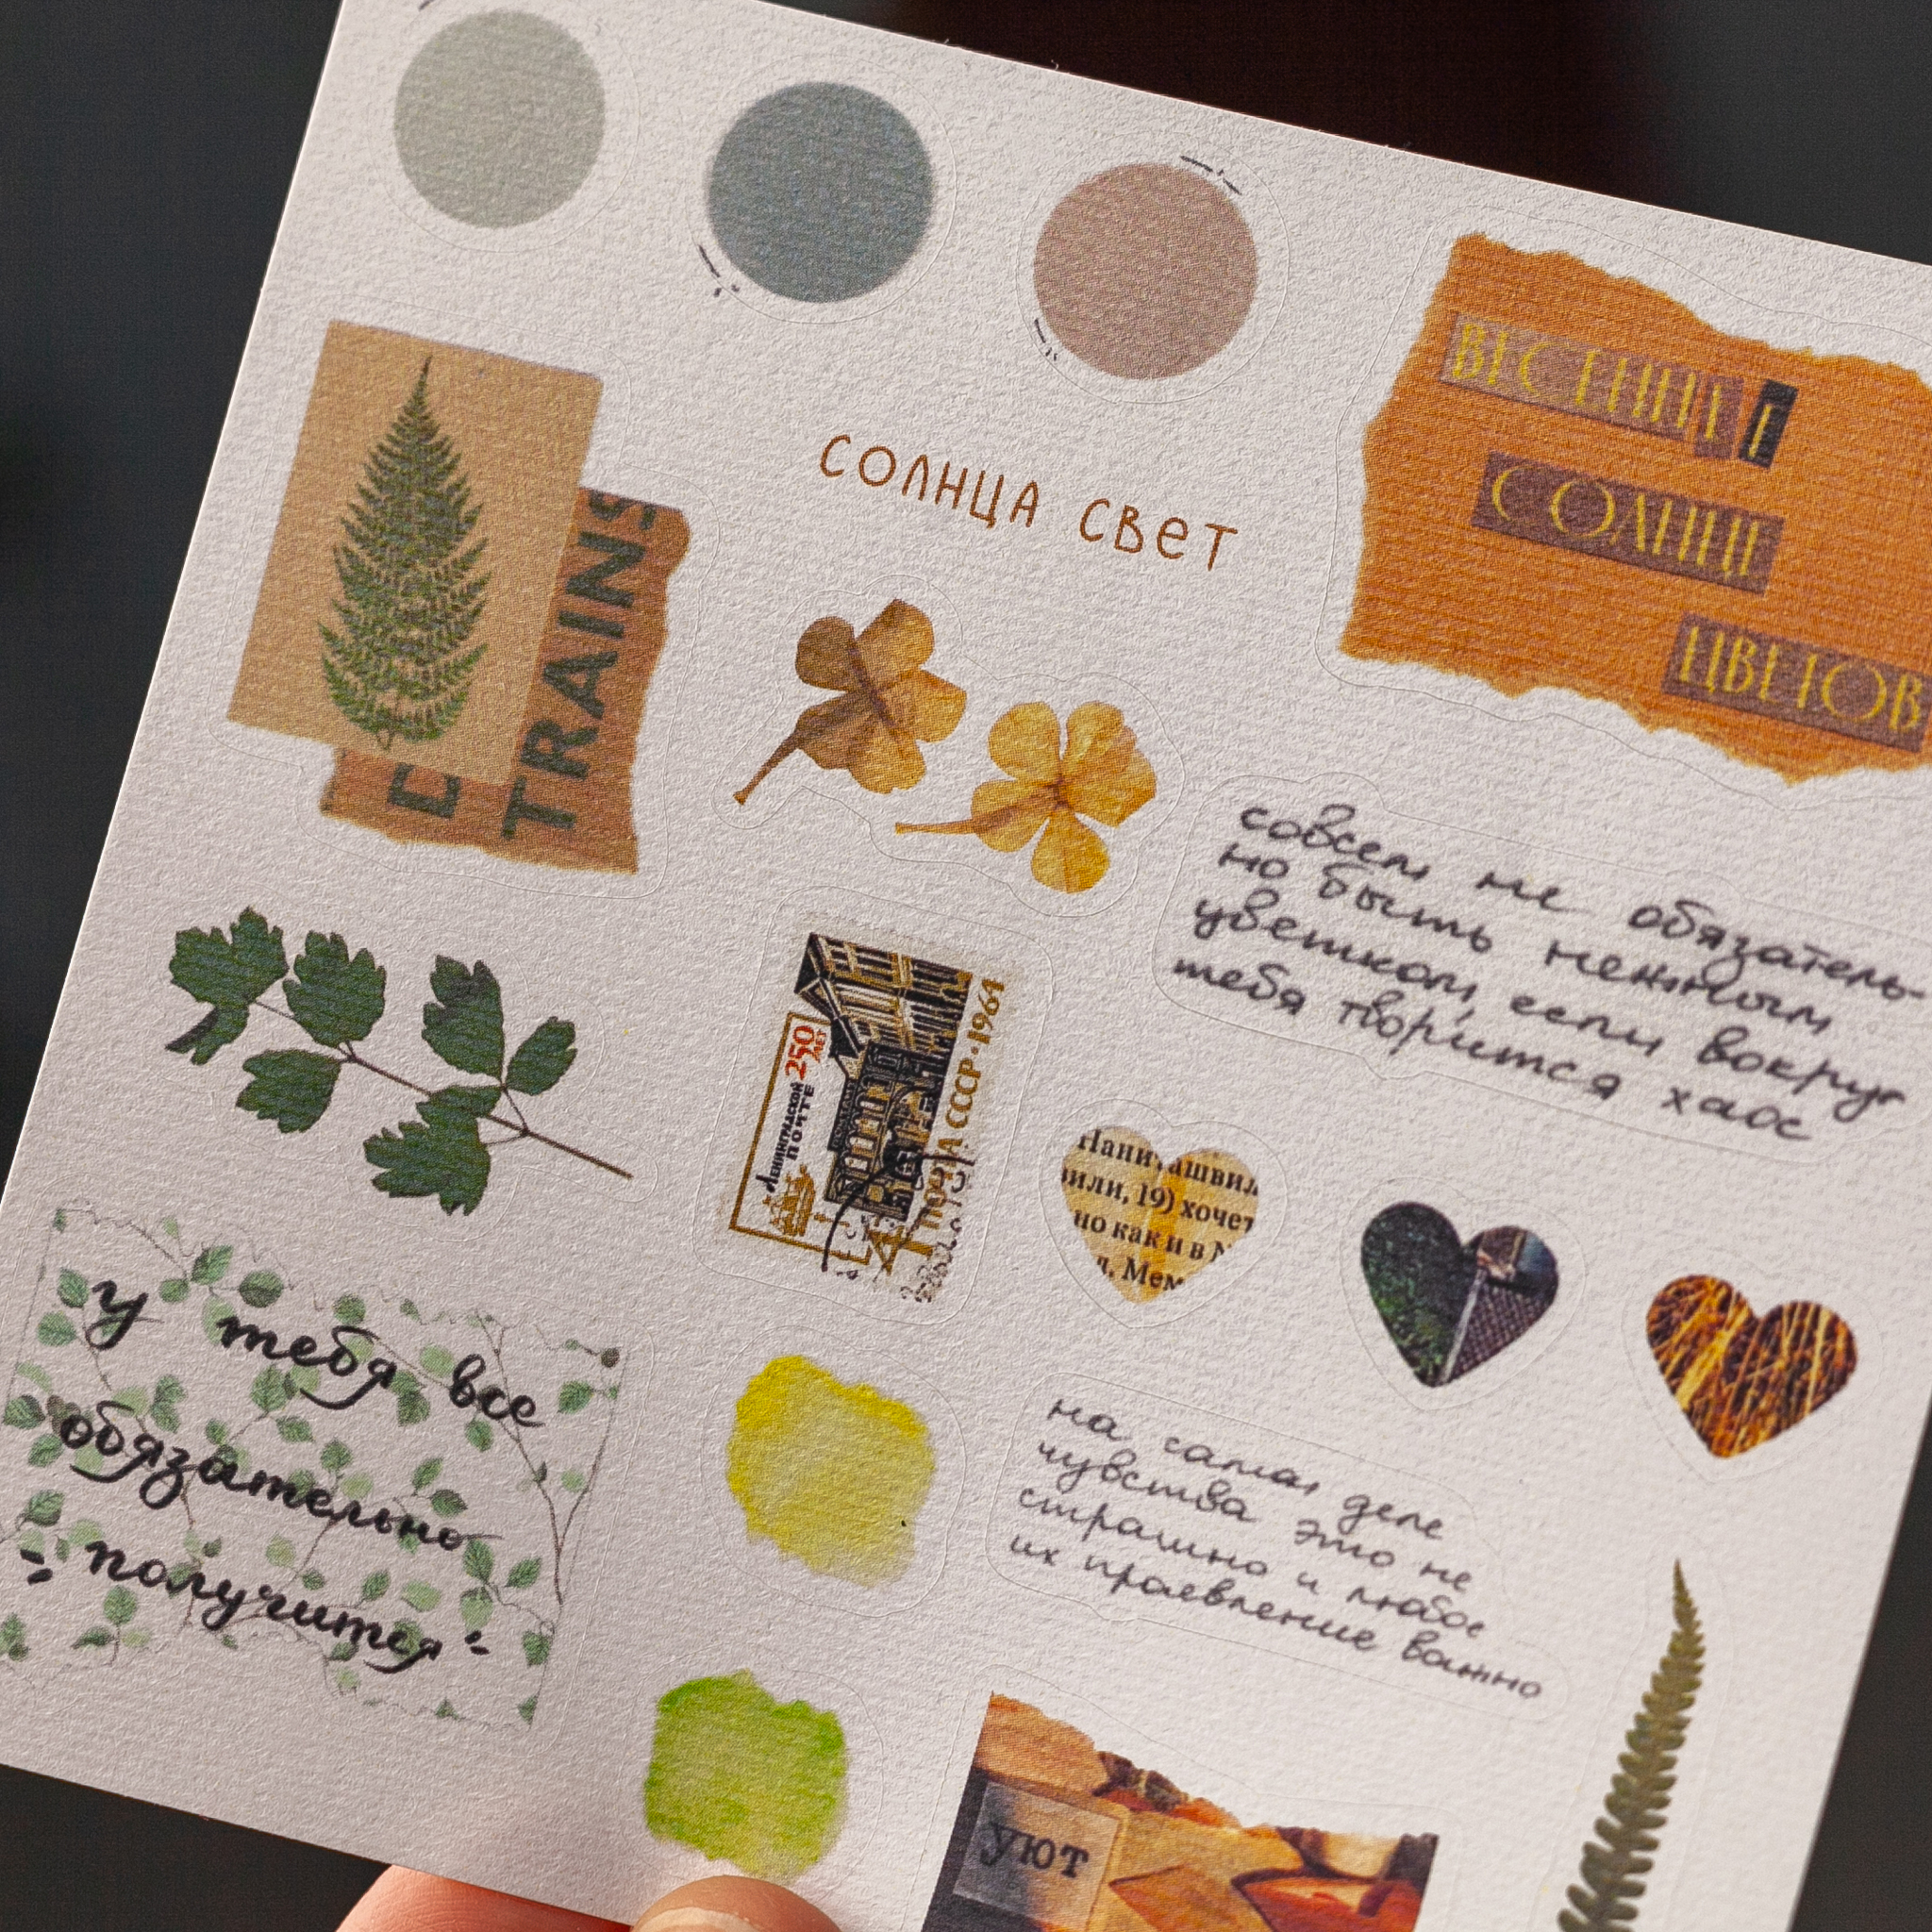 СОЛНЦА СВЕТ
ВЕСЕННЕЕ
СОЛНЦЕ
ЦВЕТОВ
TRAINS
совсем не обязатель-
но быть нежным
цветком, если вокруг
тебя творится хаос
250
ЛЕТ
ЛЕНИНГРАДСКОЙ
ПОЧТЕ
ПОЧТА СССР·1964
4
или, 19) хочет
но как и в
л. Мем
у тебя все
обязательно
получится
на самом деле
чувства это не
страшно и любое
их проевление важно
уют